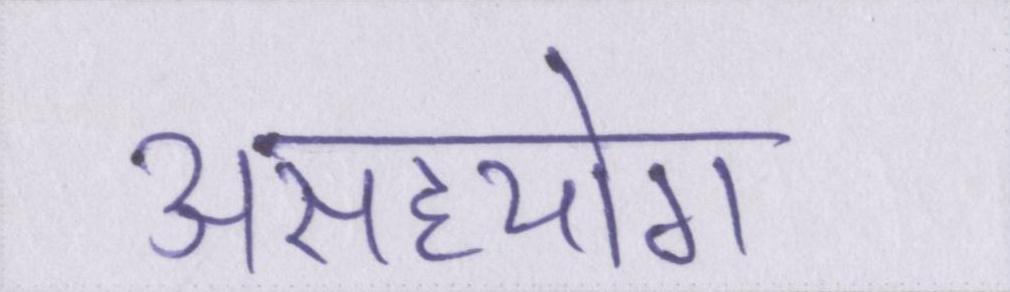 असहयोग